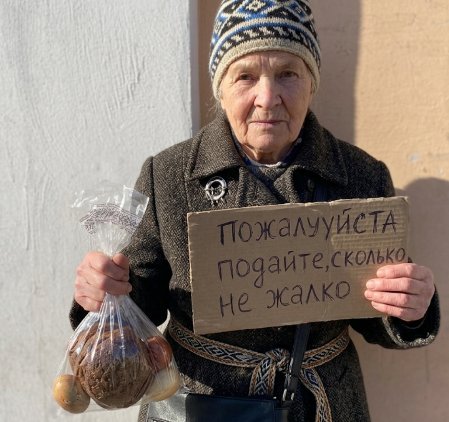 Пожалууйста
подайте, сколько
не жалко